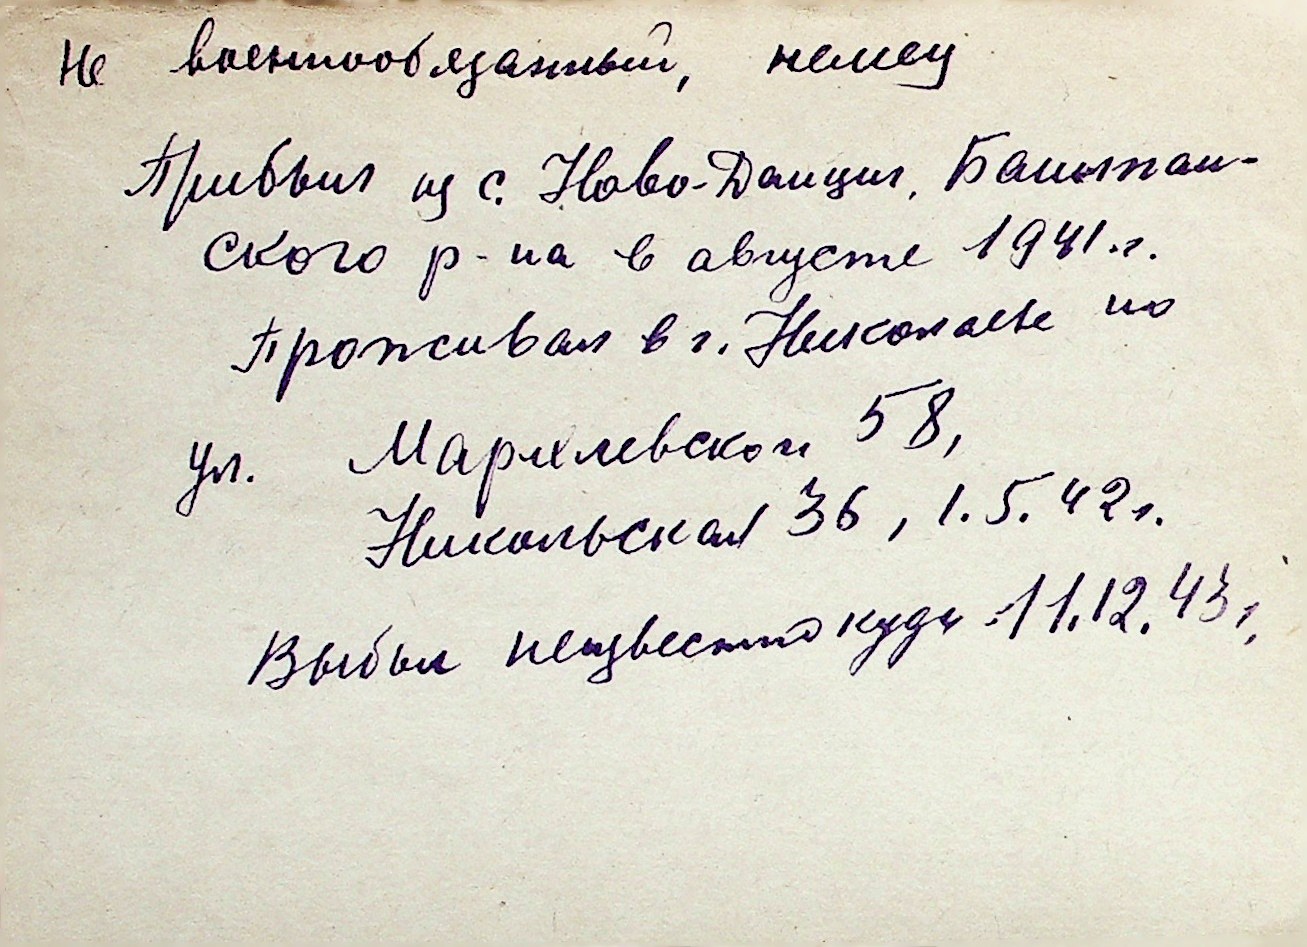 Не военнообязанный, немец
Прибыл из с. Ново-Данциг, Баштан-
ского р-на в августе 1941 г.
Проживал в г. Николаеве по
ул. Мархлевской 58,
Никольская 36, 1.5.42 г.
Выбыл неизвестно куда 11.12.43 г.